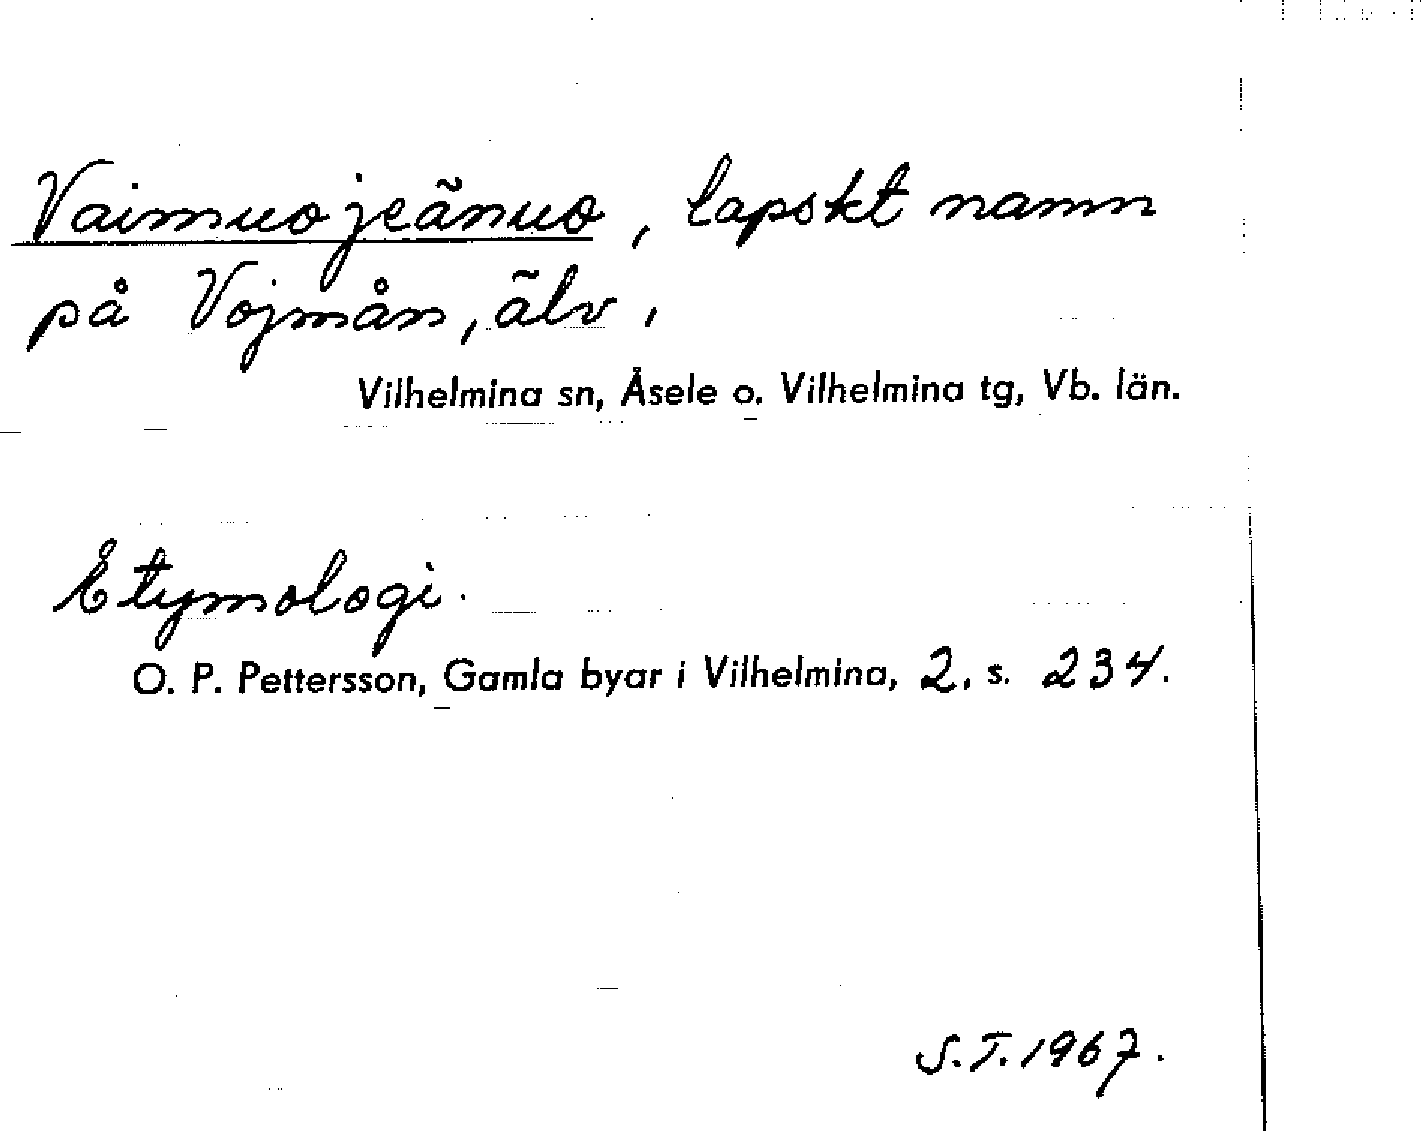 Vaimuojeänuo, lapskt namn
på Vojmån, älv,
Vilhelmina sn, Åsele o. Vilhelmina tg, Vb. län.
Etymologi.
O. P. Pettersson, Gamla byar i Vilhelmina, 2, s. 234.
S.T. 1967.